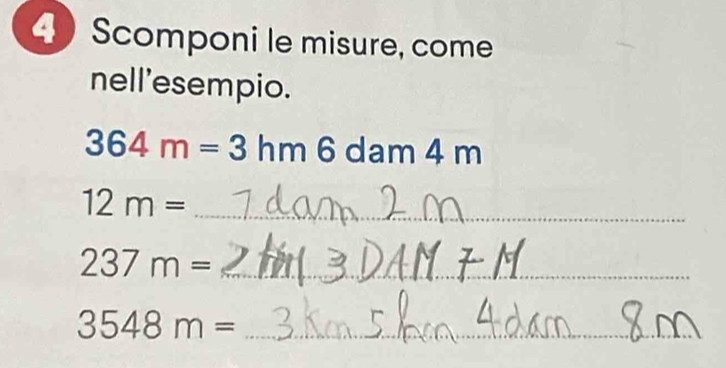 4 Scomponi le misure, come
nell'esempio.
364 m = 3 hm 6 dam 4 m
12 m = 1 dam 2 m
237 m = 2 hm 3 DAM 7 M
3548 m = 3 km 5 hm 4 dam 8 m